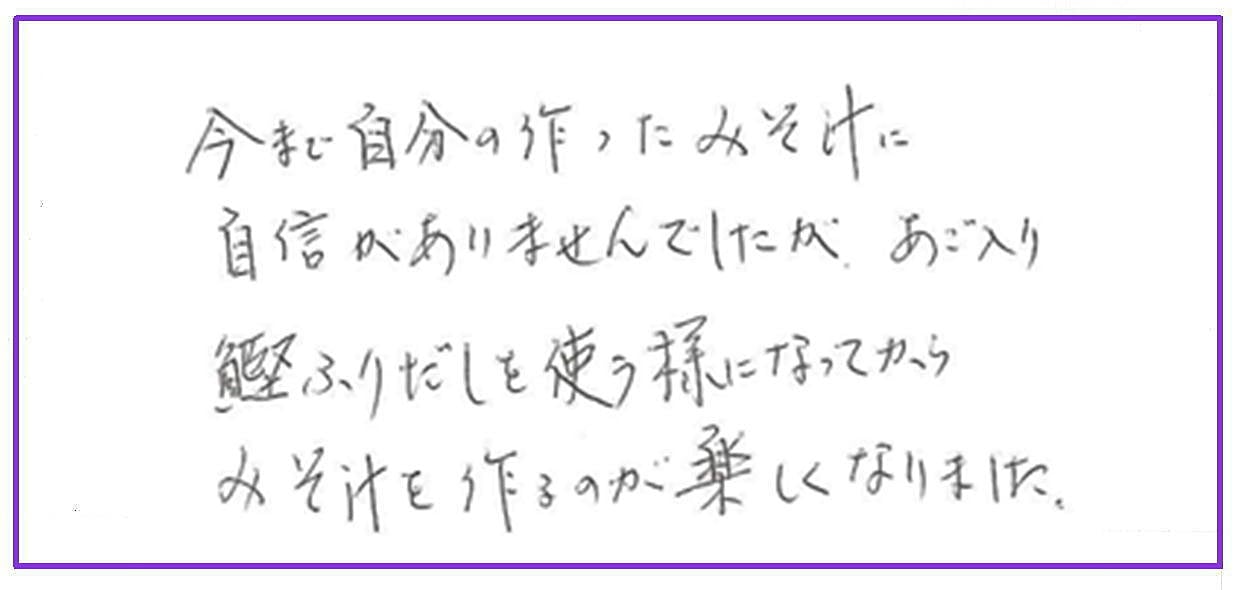 今まで自分の作ったみそ汁に
自信がありませんでしたが、あご入り
鰹ふりだしを使う様になってから
みそ汁を作るのが楽しくなりました。